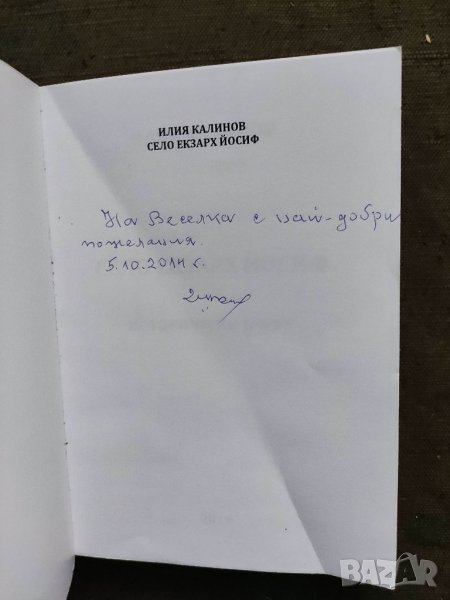 ИЛИЯ КАЛИНОВ
СЕЛО ЕКЗАРХ ЙОСИФ
На Веселка с най-добри
пожелания.
5.10.2014 г.
BAZAR